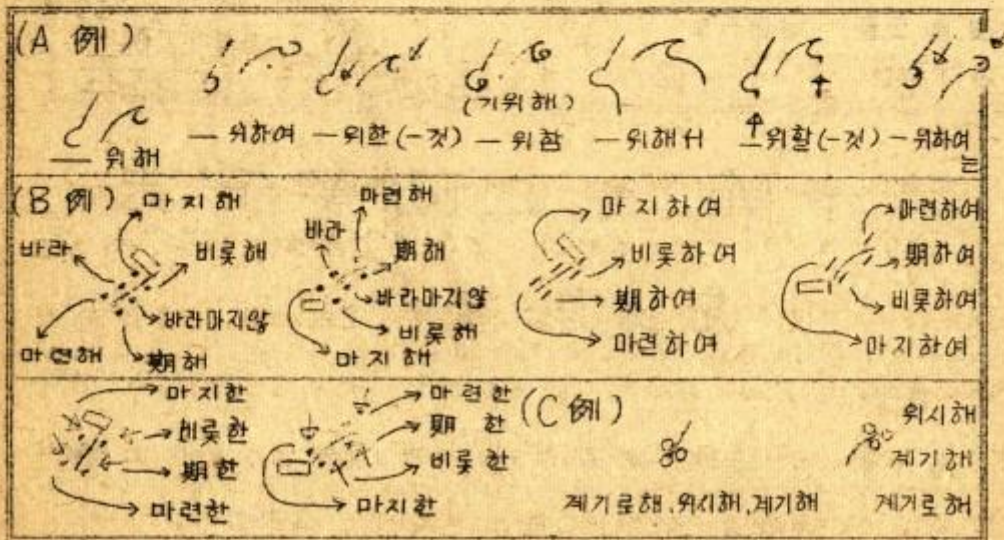 (A 例)
(기위해)
— 위해 — 위하여 — 위한 (-것) — 위함 — 위해서 — 위할 (-것) — 위하여는
(B 例)
마지해
바라
비롯해
바라마지않
마련해
期해
마련해
바라
期해
바라마지않
비롯해
마지해
마지하여
비롯하여
期하여
마련하여
마련하여
期하여
비롯하여
마지하여
마지한
비롯한
期한
마련한
마련한
期한
비롯한
마지한
(C 例)
계기로해, 위시해, 계기해
위시해
계기해
계기로해